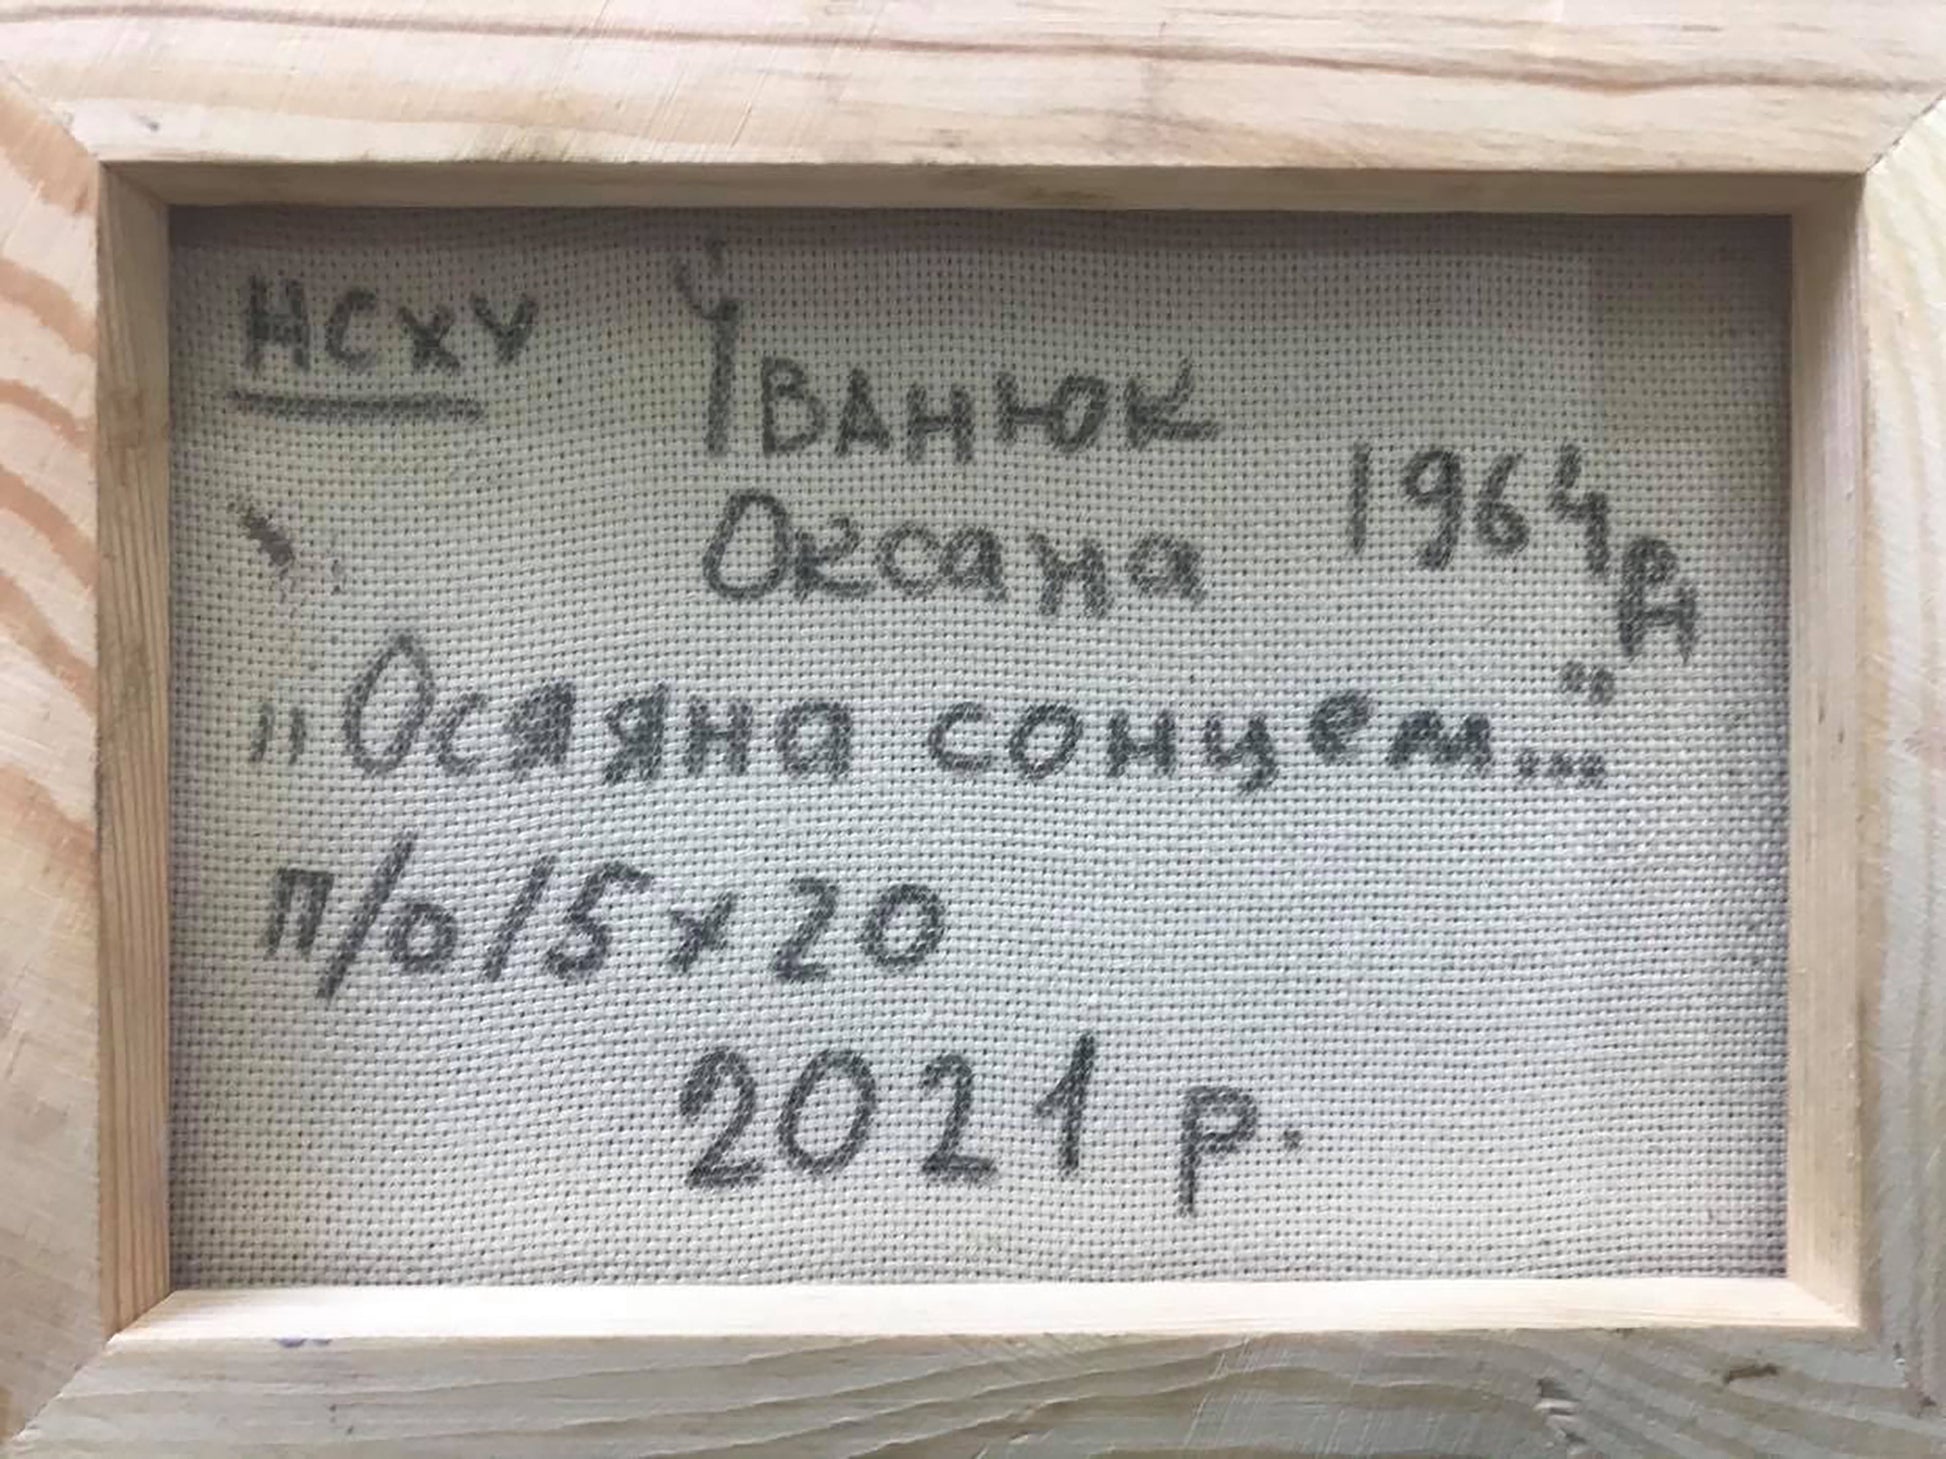 НСХУ
Іванюк
Оксана 1964 р н
„Осяяна сонцем..."
п/о 15х20
2021 р.